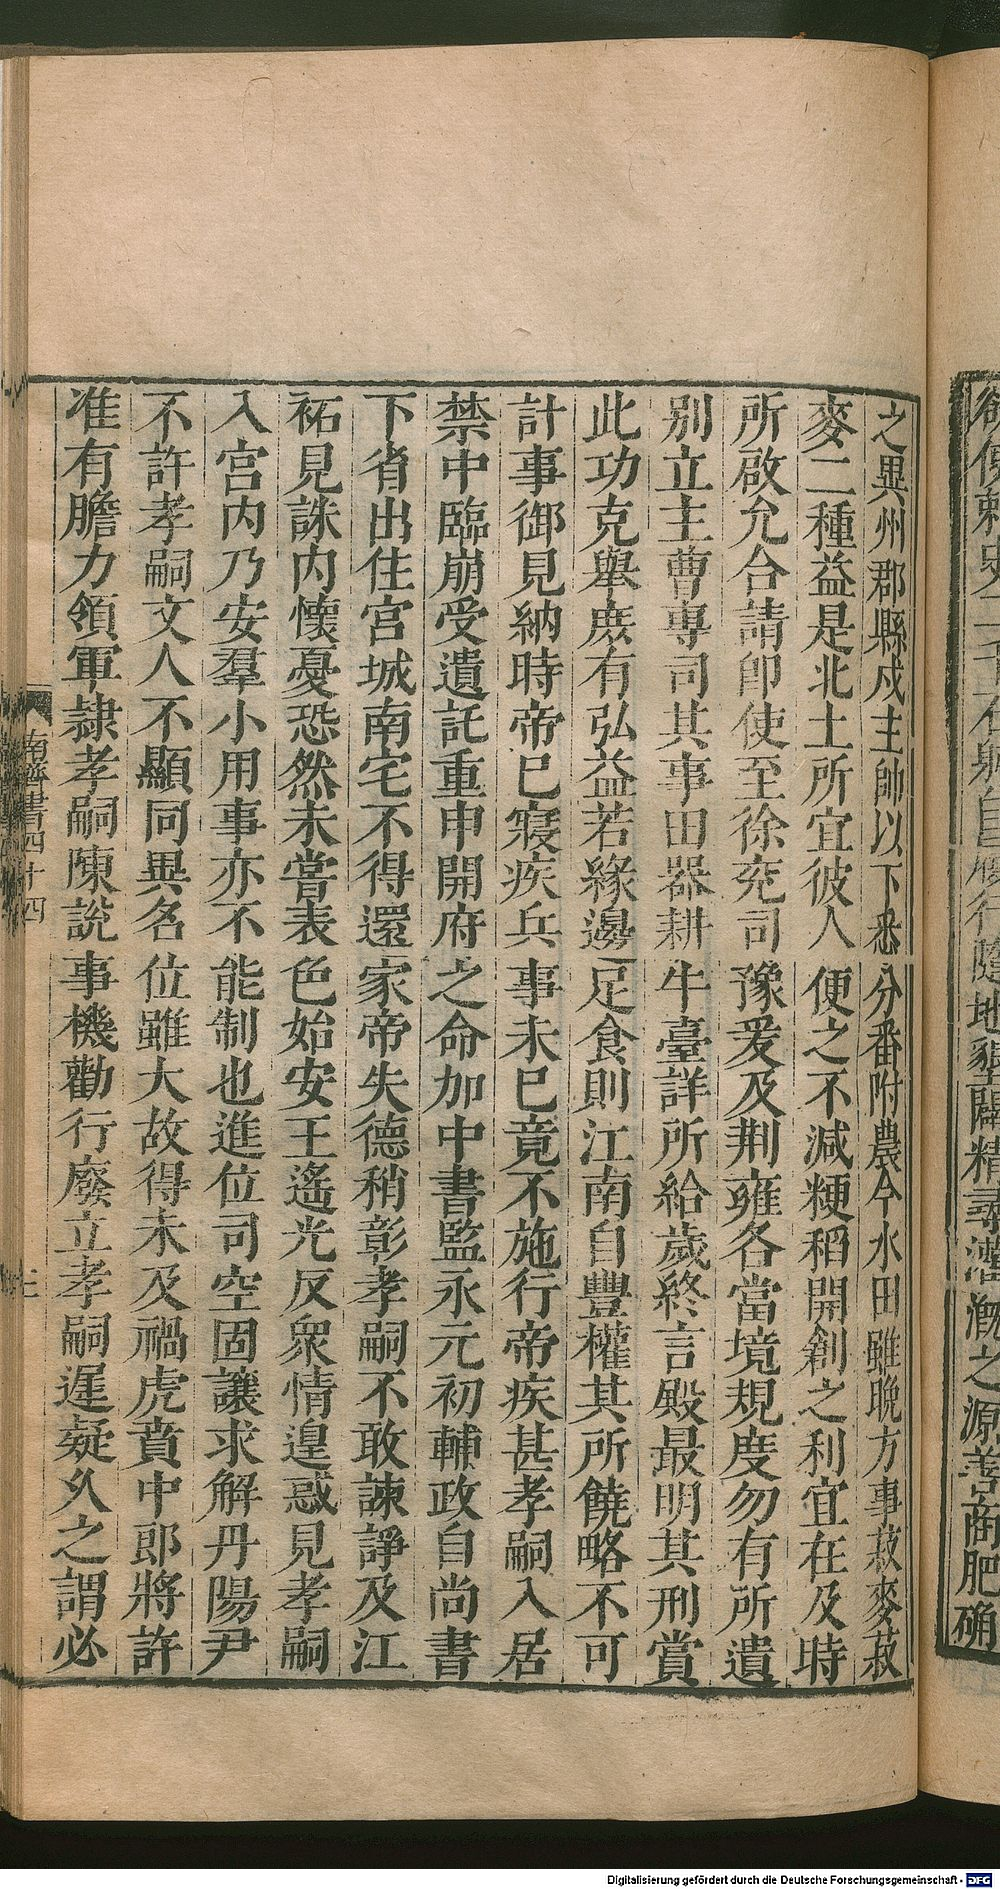 欲使刺史二千石躬自履行隨地墾闢精尋灌漑之源善商肥确
之異州郡縣戍主帥以下悉分番附農今水田雖晚方事菽麥菽
麥二種益是北土所宜彼人便之不減粳稻開創之利宜在及時
所啟允合請卽使至徐兗司豫爰及荆雍各當境規度勿有所遺
別立主曹專司其事田器耕牛臺詳所給歲終言殿最明其刑賞
此功克舉庶有弘益若緣邊足食則江南自豐權其所饒略不可
計事御見納時帝已寢疾兵事未已竟不施行帝疾甚孝嗣入居
禁中臨崩受遺託重申開府之命加中書監永元初輔政自尚書
下省出住宮城南宅不得還家帝失德稍彰孝嗣不敢諫諍及江
祏見誅內懷憂恐然未嘗表色始安王遙光反衆情遑惑見孝嗣
入宮內乃安羣小用事亦不能制也進位司空固讓求解丹陽尹
不許孝嗣文人不顯同異名位雖大故得未及禍虎賁中郎將許
准有膽力領軍隷孝嗣陳說事機勸行廢立孝嗣遲疑乆之謂必
南齊書四十四
Digitalisierung gefördert durch die Deutsche Forschungsgemeinschaft - DFG